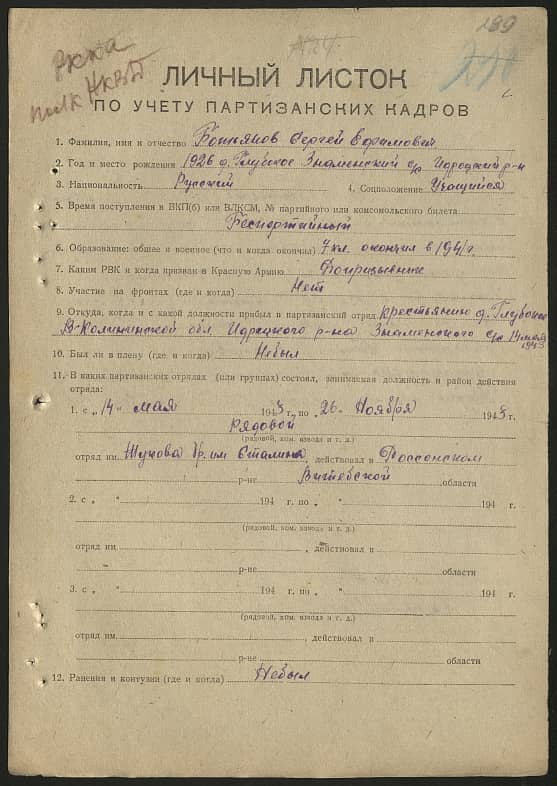 189
РККА
полк НКВД
ЛИЧНЫЙ ЛИСТОК
ПО УЧЕТУ ПАРТИЗАНСКИХ КАДРОВ
1. Фамилия, имя и отчество Сергей Ефимович
2. Год и место рождения 1926 д. Глубокое Знаменский с/с Идрецкий р-н
3. Национальность Русский 4. Соцположение Учащийся
5. Время поступления в ВКП(б) или ВЛКСМ, № партийного или комсомольского билета
Беспартийный
6. Образование: общее и военное (что и когда окончил) 7 кл. окончил в 1941 г.
7. Каким РВК и когда призван в Красную Армию Допризывник
8. Участие на фронтах (где и когда) Нет
9. Откуда, когда и с какой должности прибыл в партизанский отряд крестьянин д. Глубокое
Калининской обл. Идрецкого р-на Знаменского с/с 14 мая
1943
10. Был ли в плену (где и когда) Небыл
11. В каких партизанских отрядах (или группах) состоял, занимаемая должность и район действия
отряда:
1. с „14" мая 1943 г. по „26" Ноября 1943 г.
Рядовой
(рядовой, ком. взвода и т. д.)
отряд им. Жукова бр. им Сталина, действовал в Россонском
р-не Витебской области
2. с „ " 194 г. по „ " 194 г.
(рядовой, ком. взвода и т. д.)
отряд им. , действовал в
р-не области
3. с „ " 194 г. по „ " 194 г.
(рядовой, ком. взвода и т. д.)
отряд им. , действовал в
р-не области
12. Ранения и контузии (где и когда) Небыл